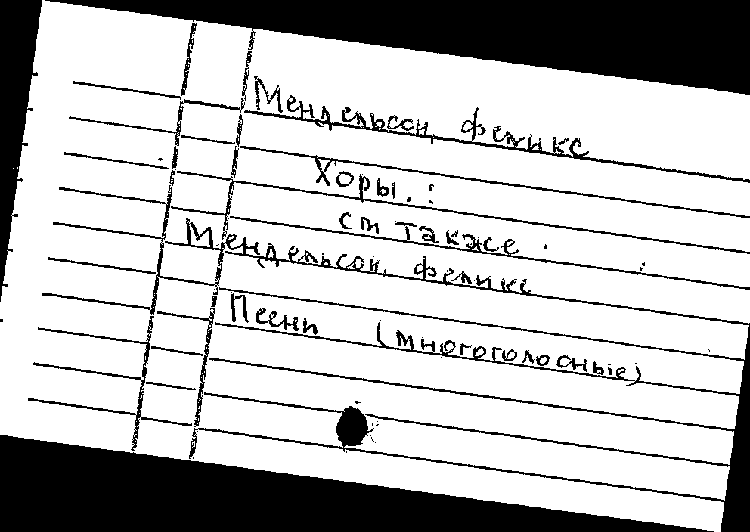 Мендельсон, Феликс
Хоры. :
см также :
Мендельсон, Феликс
Песни (многоголосные)